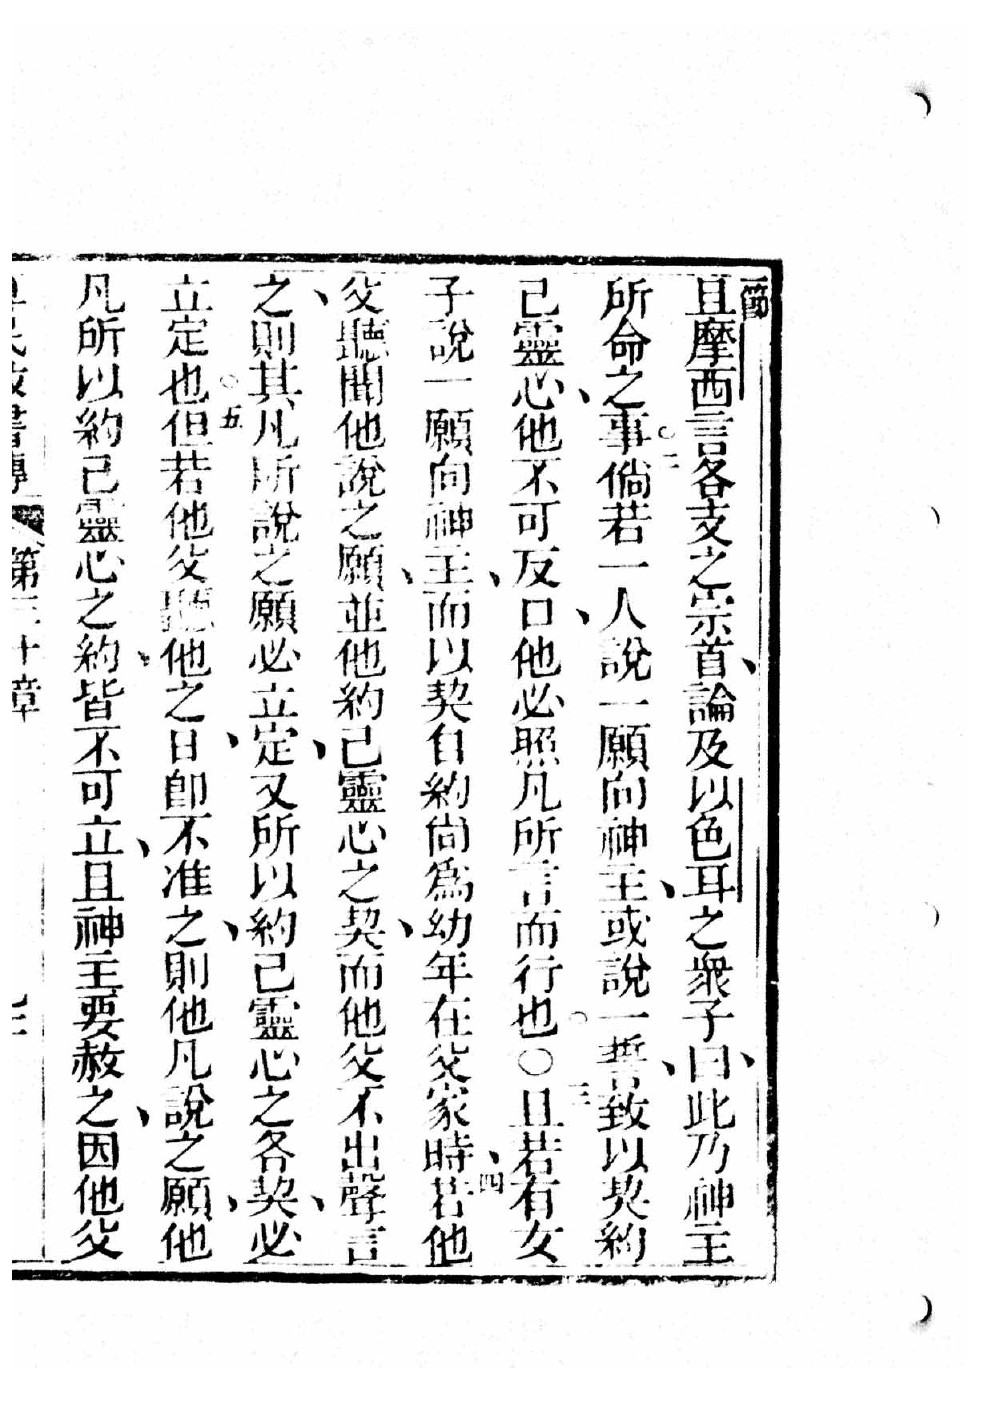 一節
且摩西言各支之宗首、論及以色耳之衆子、曰此乃神主
所命之事○二倘若一人說一願向神主、或說一誓、致以契約
己靈心、他不可反口、他必照凡所言而行也○○三且若有女
子說一願向神主、而以契自約尚爲幼年在父家時、四若他
父聽聞他說之願、並他約己靈心之契、而他父不出聲言
之、則其凡所說之願必立定、又所以約己靈心之各契、必
立定也○五但若他父聽他之日、卽不准之、則他凡說之願、他
凡所以約己靈心之約、皆不可立、且神主要赦之、因他父
第三十章